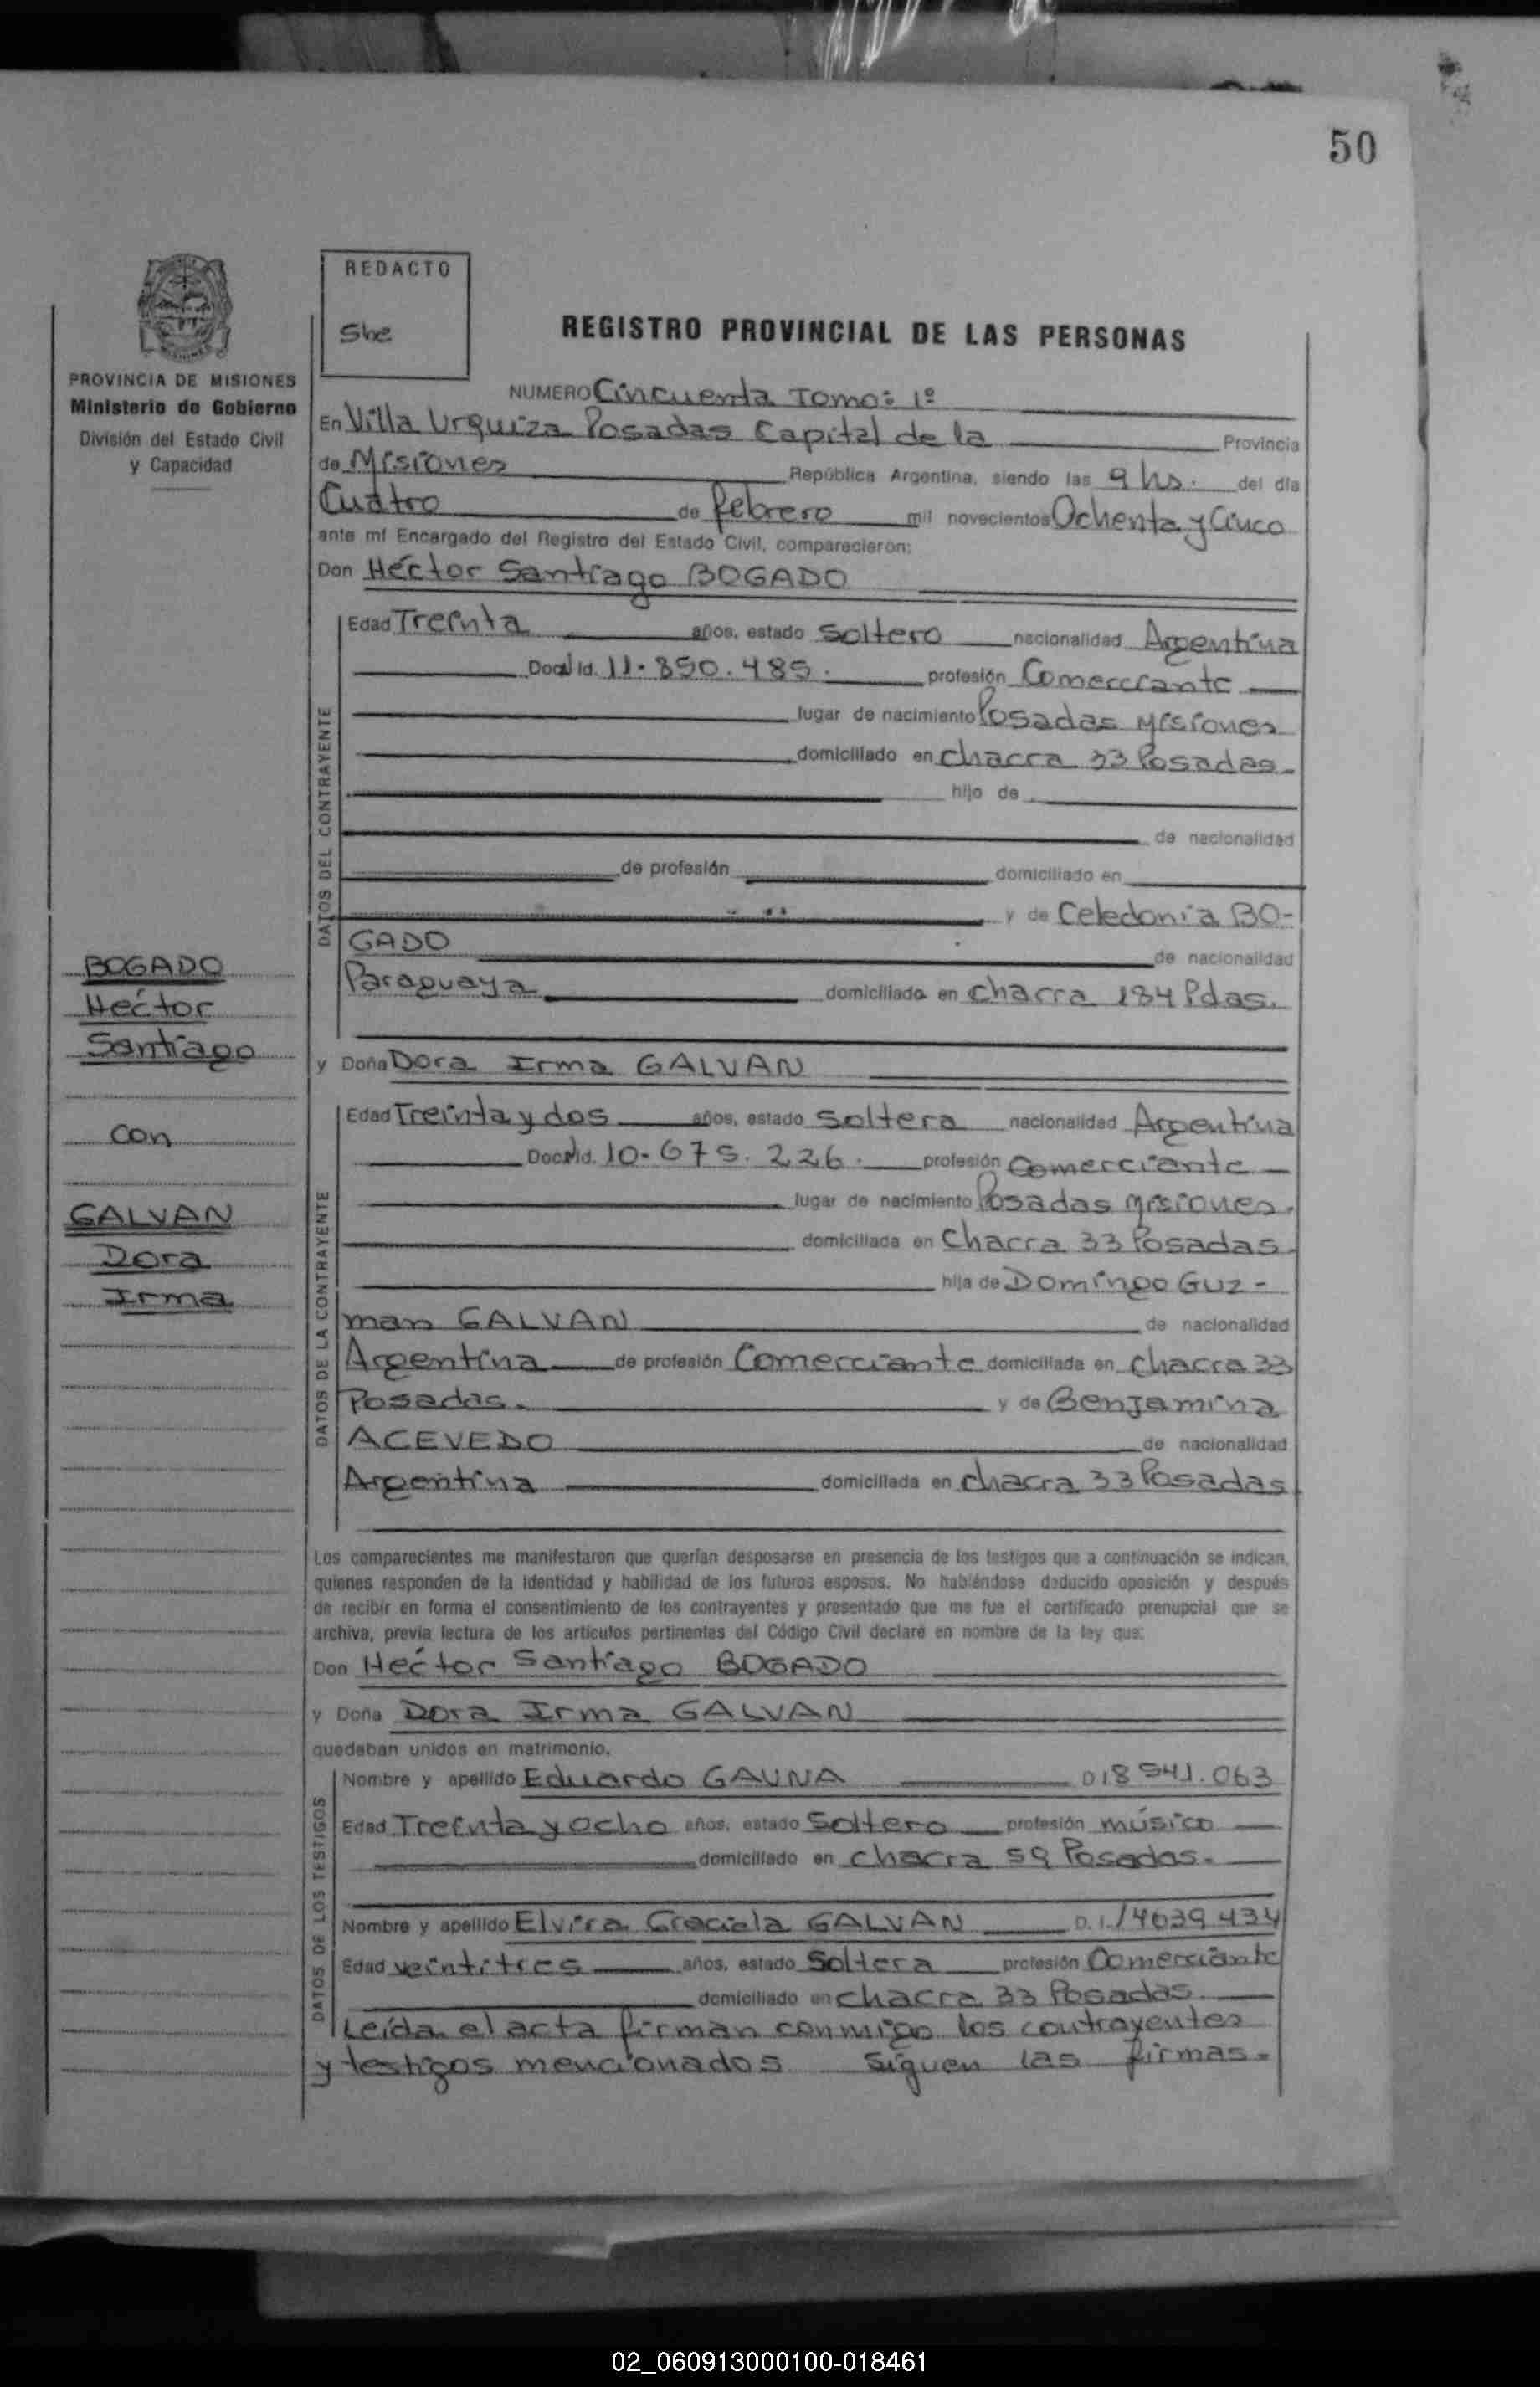 50
REDACTO
She
REGISTRO PROVINCIAL DE LAS PERSONAS
PROVINCIA DE MISIONES
Ministerio de Gobierno
División del Estado Civil
y Capacidad
NUMERO Cincuenta Tomo: 1º
En Villa Urquiza Posadas Capital de la Provincia
de Misiones República Argentina, siendo las 9 hs. del día
Cuatro de febrero mil novecientos Ochenta y Cinco
ante mí Encargado del Registro del Estado Civil, comparecieron:
Don Héctor Santiago BOGADO
DATOS DEL CONTRAYENTE
Edad Treinta años, estado Soltero nacionalidad Argentina
Doc. Id. 11.890.485. profesión Comerciante
lugar de nacimiento Posadas Misiones
domiciliado en chacra 33 Posadas
hijo de
de nacionalidad
de profesión domiciliado en
y de Celedonia BO-
GADO de nacionalidad
Paraguaya domiciliada en chacra 184 Pdas.
BOGADO
Héctor
Santiago
con
GALVAN
Dora
Irma
y Doña Dora Irma GALVAN
DATOS DE LA CONTRAYENTE
Edad Treinta y dos años, estado Soltera nacionalidad Argentina
Doc. Id. 10.675.226. profesión Comerciante
lugar de nacimiento Posadas Misiones.
domiciliada en Chacra 33 Posadas.
hija de Domingo Guz-
man GALVAN de nacionalidad
Argentina de profesión Comerciante domiciliada en chacra 33
Posadas. y de Benjamina
ACEVEDO de nacionalidad
Argentina domiciliada en chacra 33 Posadas
Los comparecientes me manifestaron que querían desposarse en presencia de los testigos que a continuación se indican,
quienes responden de la identidad y habilidad de los futuros esposos. No habiéndose deducido oposición y después
de recibir en forma el consentimiento de los contrayentes y presentado que me fue el certificado prenupcial que se
archiva, previa lectura de los artículos pertinentes del Código Civil declaré en nombre de la ley que:
Don Héctor Santiago BOGADO
y Doña Dora Irma GALVAN
quedaban unidos en matrimonio.
DATOS DE LOS TESTIGOS
Nombre y apellido Eduardo GAUNA 018 541.063
Edad Treinta y ocho años, estado Soltero profesión músico
domiciliado en chacra 59 Posadas.
Nombre y apellido Elvira Graciela GALVAN D.I. 14639434
Edad veintitres años, estado Soltera profesión Comerciante
domiciliado en chacra 33 Posadas.
Leída el acta firman conmigo los contrayentes
y testigos mencionados Siguen las firmas.
02_060913000100-018461